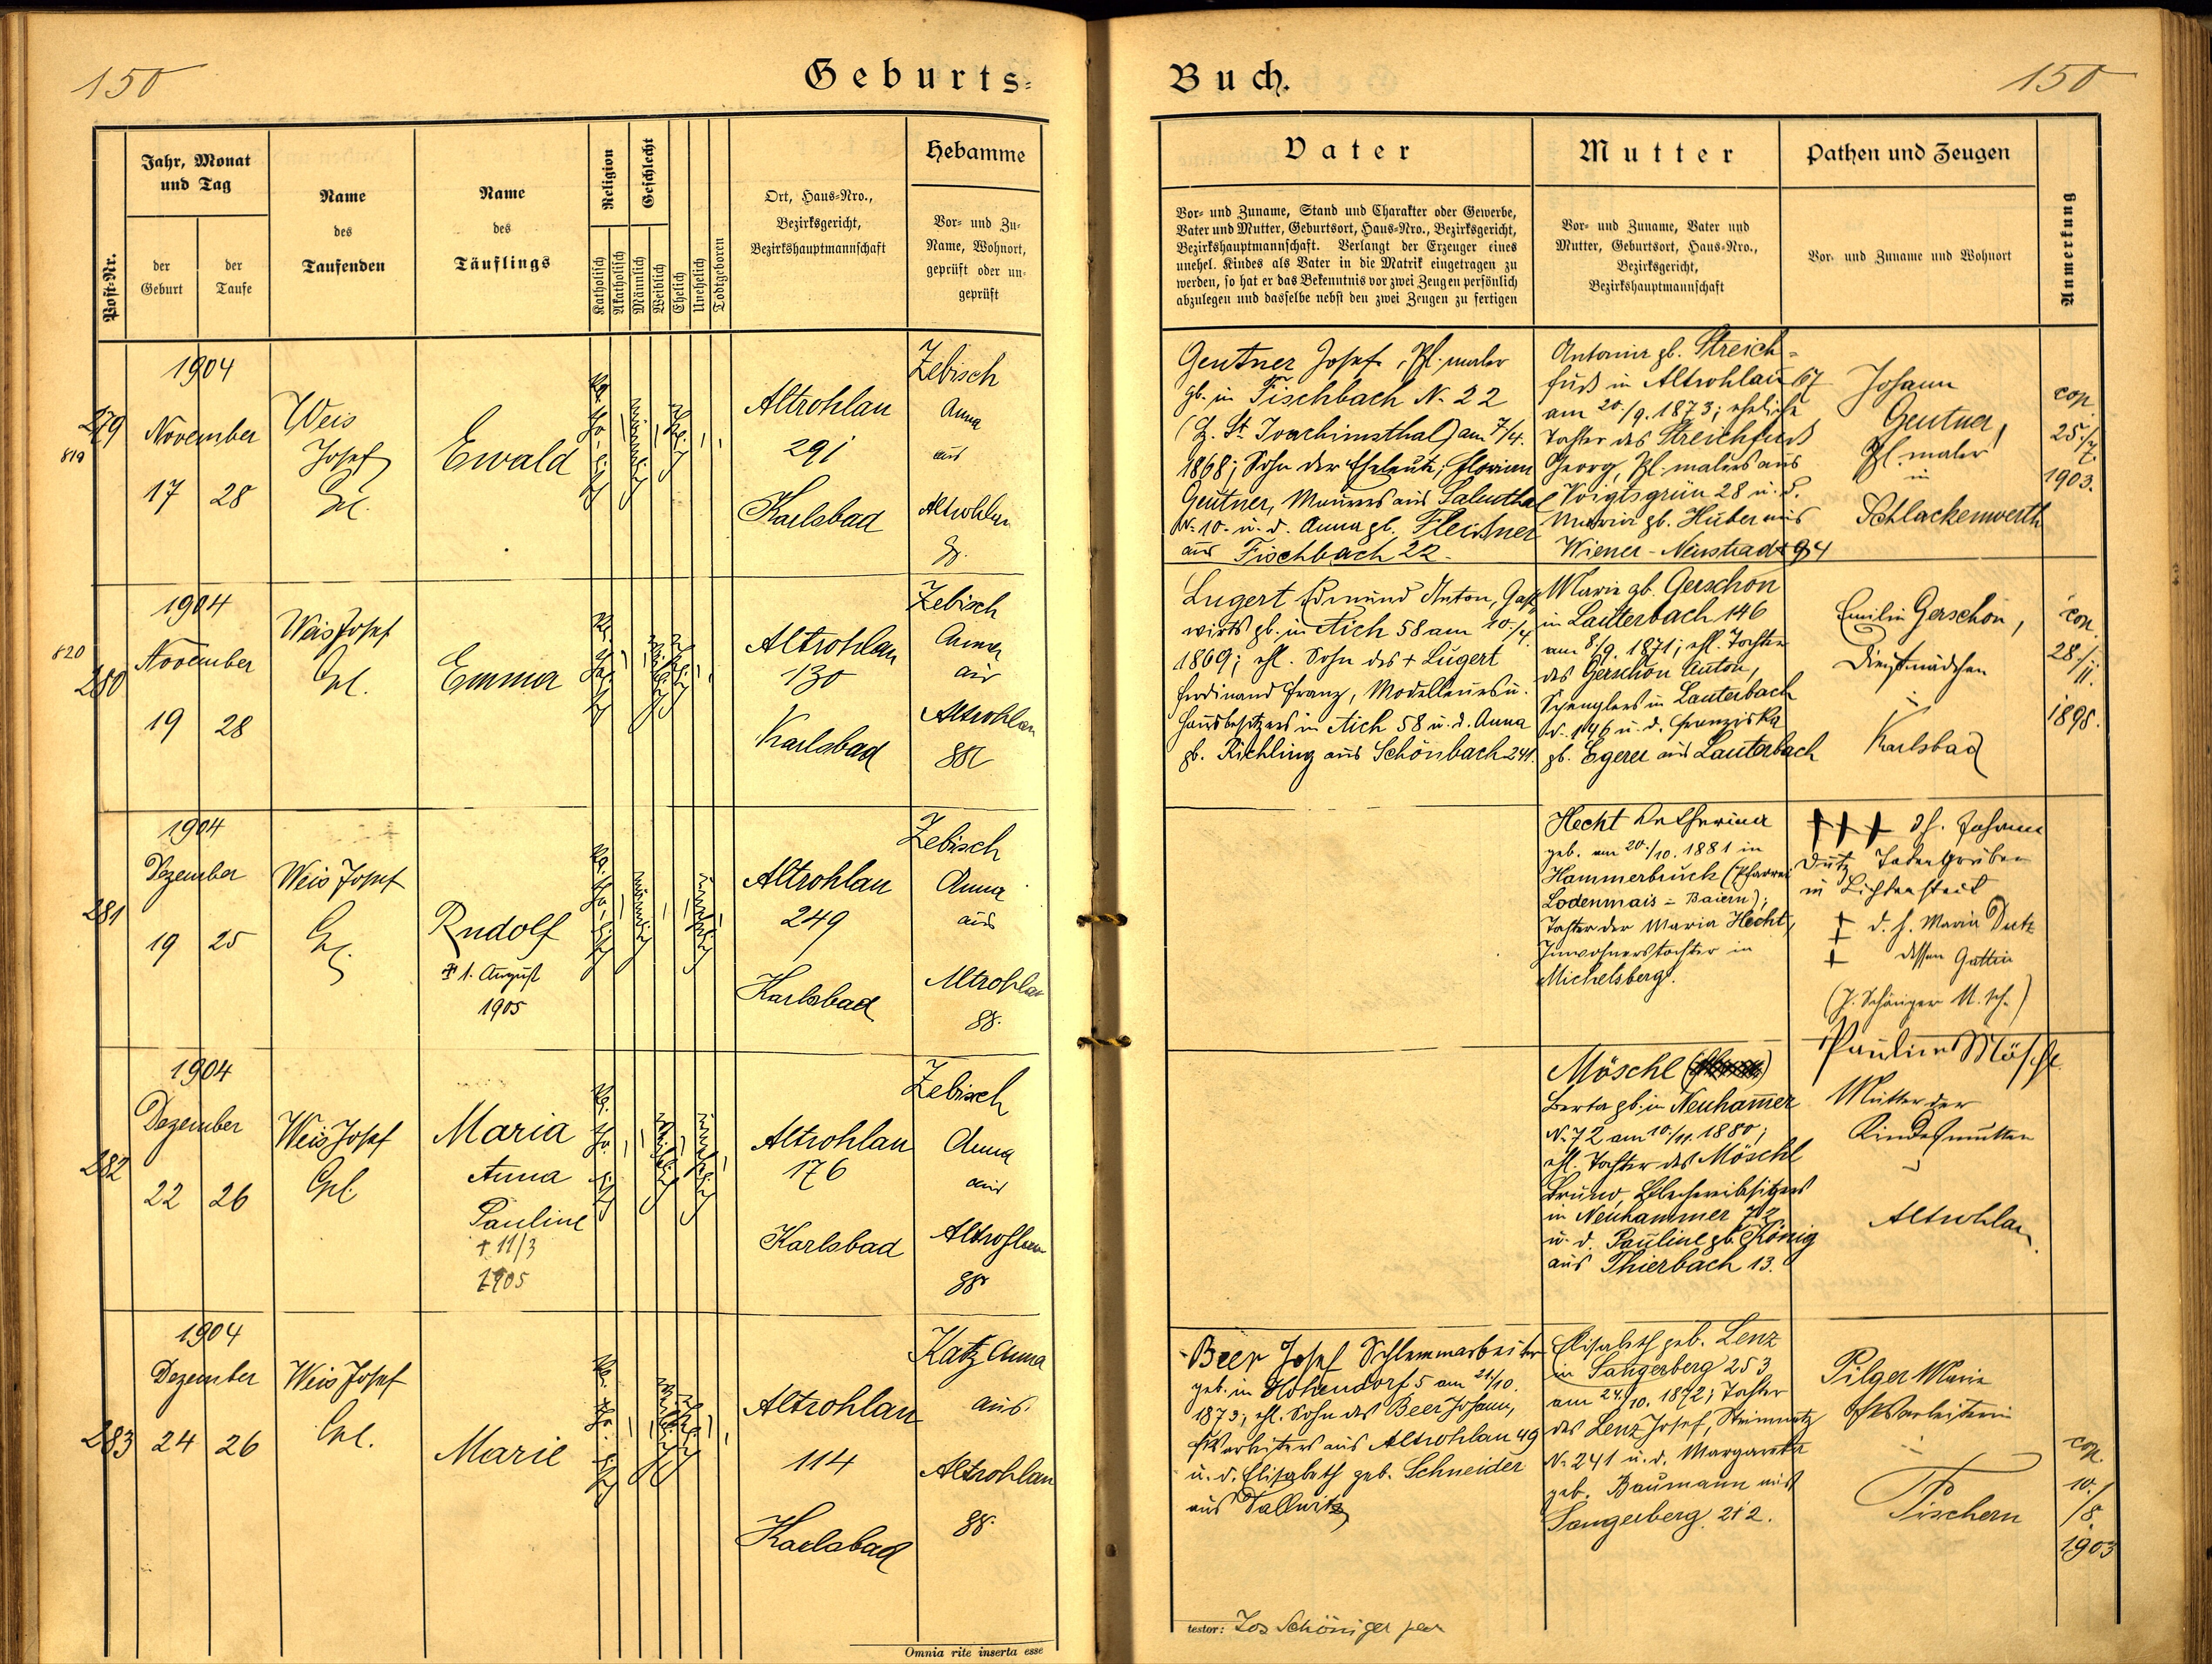 150
Geburts-
Buch.
150
Post-Nr.
Jahr, Monat
und Tag
der
Geburt
der
Taufe
Name
des
Taufenden
Name
des
Täuflings
Religion
Katholisch
Akatholisch
Geschlecht
Männlich
Weiblich
Ehelich
Unehelich
Todtgeboren
Ort, Haus-Nro.,
Bezirksgericht,
Bezirkshauptmannschaft
Hebamme
Vor- und Zu-
Name, Wohnort,
geprüft oder un-
geprüft
Vater
Vor- und Zuname, Stand und Charakter oder Gewerbe,
Vater und Mutter, Geburtsort, Haus-Nro., Bezirksgericht,
Bezirkshauptmannschaft. Verlangt der Erzeuger eines
unehel. Kindes als Vater in die Matrik eingetragen zu
werden, so hat er das Bekenntnis vor zwei Zeugen persönlich
abzulegen und dasselbe nebst den zwei Zeugen zu fertigen
Mutter
Vor- und Zuname, Vater und
Mutter, Geburtsort, Haus-Nro.,
Bezirksgericht,
Bezirkshauptmannschaft
Pathen und Zeugen
Vor- und Zuname und Wohnort
Anmerkung
279
819
1904
November
17 28
Weis
Josef
Ewald
Altrohlau
291
Karlsbad
Zebisch
Anna
aus
Altrohlau
Gentner Josef, Pl. maler
gb. in Fischbach N. 22
(B. St. Joachimsthal) am 7/4.
1868; Sohn der Eheleute, Florian
Gentner, Maurers aus Salmthal
N. 10. u. d. Anna gb. Fleissner
aus Fischbach 22.
Antonia gb. Streich-
fuss in Altrohlau 67
am 20./9. 1873; eheliche
Tochter des Streichfuss
Georg, Pl. malers aus
Voigtsgrün 28 u. d.
Maria gb. Huber aus
Wiener-Neustadt 94
Johann
Gentner,
Pl. maler
in
Schlackenwerth
cop.
25./7.
1903.
820
280
1904
November
19 28
Weis Josef
Emma
Altrohlau
130
Karlsbad
Zebisch
Anna
aus
Altrohlau
88
Lugert Edmund Anton, Gast-
wirts gb. in Aich 58 am 10./4.
1869; ehl. Sohn des + Lugert
Ferdinand Franz, Modelleurs u.
Hausbesitzers in Aich 58 u. d. Anna
gb. Richling aus Schönbach 241.
Marie gb. Gerschon
in Lauterbach 146
am 8/9. 1871; ehl. Tochter
des Gerschon Anton,
Spenglers in Lauterbach
N. 146 u. d. Franziska
gb. Egerer aus Lauterbach
Emilie Gerschon,
Dienstmädchen
in
Karlsbad
cop.
28./11.
1898.
281
1904
Dezember
19 25
Weis Josef
Rudolf
1. August
1905
Altrohlau
249
Karlsbad
Zebisch
Anna
aus
Altrohlau
88.
Hecht Katharina
geb. am 20./10. 1881 in
Hammerbruck (Pfarrei
Bodenmais = Baiern);
Tochter der Maria Hecht,
Inwohnerstochter in
Michelsberg.
+++ d. h. Johann
Dutz
in Lichtenstadt
+++ d. h. Maria Dutz
dessen Gattin
282
1904
Dezember
22 26
Weis Josef
Maria
Anna
Pauline
+ 11/3
1905
Altrohlau
176
Karlsbad
Zebisch
Anna
aus
Altrohlau
88
Möschl
Berta gb. in Neuhammer
N. 72 am 10./11. 1880;
ehl. Tochter des Möschl
Bruno,
in Neuhammer 72
u. d. Pauline gb. König
aus Thierbach 13.
Pauline Möschl
Mutter der
Kindesmutter
in
Altrohlau.
283
1904
Dezember
24 26
Weis Josef
Marie
Altrohlau
114
Karlsbad
Katz Anna
aus
Altrohlau
88.
Beer Josef Schlemmarbeiter
geb. in Hohendorf 5 am 21./10.
1873; ehl. Sohn des Beer Johann,
aus Altrohlau 49
u. d. Elisabeth geb. Schneider
aus Dallwitz
Elisabeth geb. Lenz
in Sangerberg 253
am 24./10. 1872; Tochter
des Lenz Josef, Steinmetz
N. 241 u. d. Margareta
geb. Baumann aus
Sangerberg 212.
Pilger Marie
in
Fischern
cop.
10./8.
1903
Omnia rite inserta esse
testor: Jos Schöniger